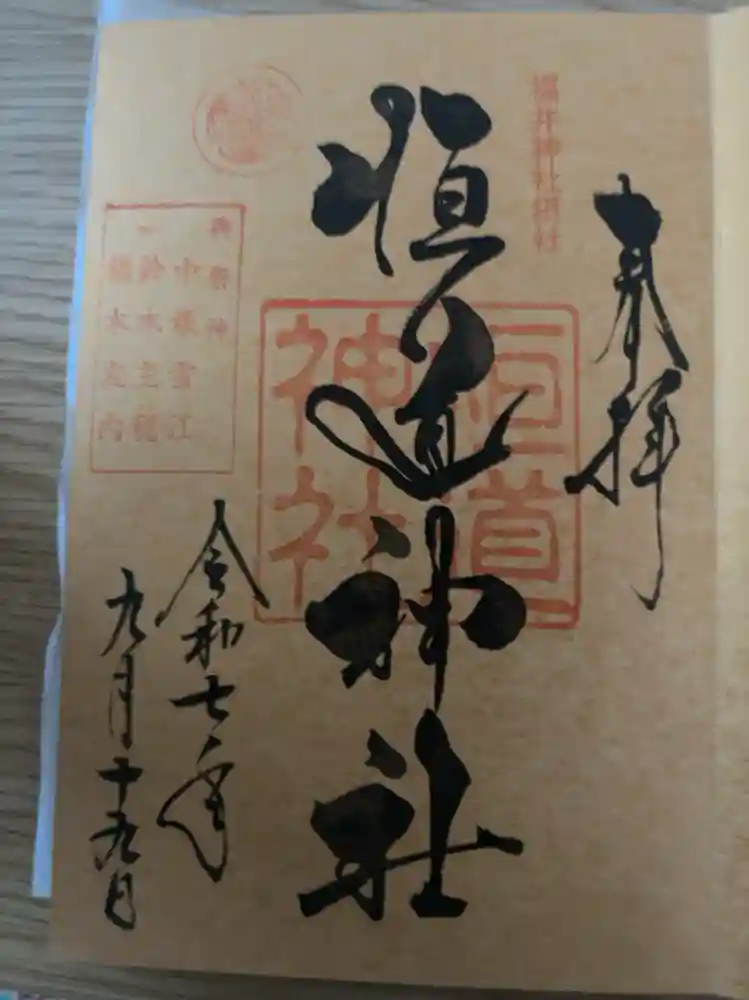 奉拝
福井神社摂社
恒道神社
恒道
神社
御祭神
中根雪江
鈴木主税
鈴木左内
令和七年
九月十九日